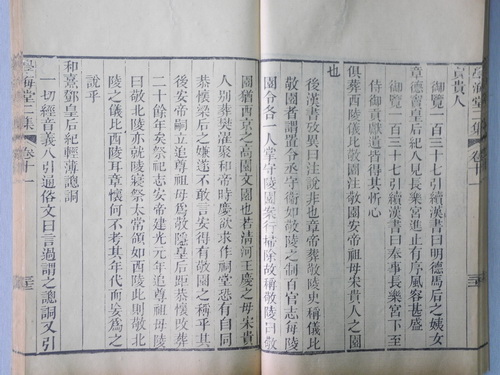 貴人
御覽一百三十七引續漢書曰明德馬后之姨女
章德竇皇后紀入見長樂宮進止有序風容甚盛
御覽一百三十七引續漢書曰奉事長樂宮下至
侍御貢獻遣皆得其忻心
俱葬西陵儀比敬園注敬園安帝祖母宋貴人之園
也
後漢書攷異曰注說非也章帝葬敬陵史稱儀比
敬園者謂置令丞守衛如敬陵之制百官志每陵
園令各一人掌守陵園案行掃除故稱敬陵曰敬
園猶西京之高園文園也若清河王慶之母宋貴
人別葬樊濯聚和帝時慶欲求作祠堂恐有自同
恭懷梁后之嫌遂不敢言安得有敬園之稱乎其
後安帝嗣立追尊祖母爲敬隱皇后距恭懷改葬
二十餘年矣祭祀志安帝建光元年追尊祖母陵
曰敬北陵亦就陵寢祭太常領如西陵此則敬北
陵之儀比西陵耳章懷何不考其年代而妄爲之
說乎
和熹鄧皇后紀輕薄謥詷
一切經音義八引通俗文曰言過謂之謥詷又引
海堂 集 卷十一